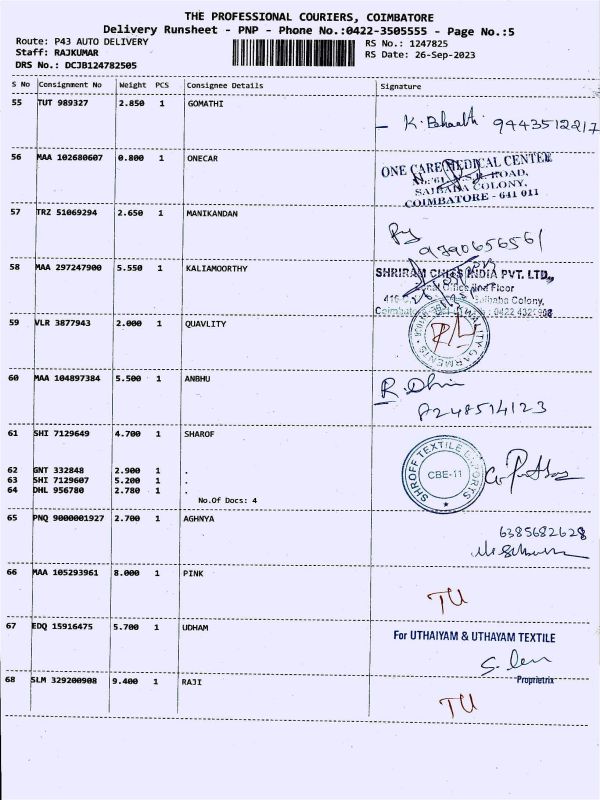 THE PROFESSIONAL COURIERS, COIMBATORE
Delivery Runsheet - PNP - Phone No.:0422-3505555 - Page No.:5
Route: P43 AUTO DELIVERY
Staff: RAJKUMAR
DRS No.: DCJB124782505
RS No.: 1247825
RS Date: 26-Sep-2023
S No Consignment No Weight PCS Consignee Details Signature
55 TUT 989327 2.850 1 GOMATHI
9443512217
56 MAA 102680607 0.800 1 ONECAR
ONE CARE MEDICAL CENTER
ROAD,
SAIBABA COLONY,
COIMBATORE - 641 011
57 TRZ 51069294 2.650 1 MANIKANDAN
9790656561
58 MAA 297247900 5.550 1 KALIAMOORTHY
SHRIRAM CHITS INDIA PVT. LTD.,
Floor
Saibaba Colony,
59 VLR 3877943 2.000 1 QUAVLITY
GARMENTS
60 MAA 104897384 5.500 1 ANBHU
8248514123
61 SHI 7129649 4.700 1 SHAROF
SHROFF TEXTILE EXPORTS
CBE-11
62 GNT 332848 2.900 1 .
63 SHI 7129607 5.200 1 .
64 DHL 956780 2.780 1 .
No.Of Docs: 4
65 PNQ 9000001927 2.700 1 AGHNYA
6385682628
66 MAA 105293961 8.000 1 PINK
TU
67 EDQ 15916475 5.700 1 UDHAM
For UTHAIYAM & UTHAYAM TEXTILE
Proprietrix
68 SLM 329200908 9.400 1 RAJI
TU